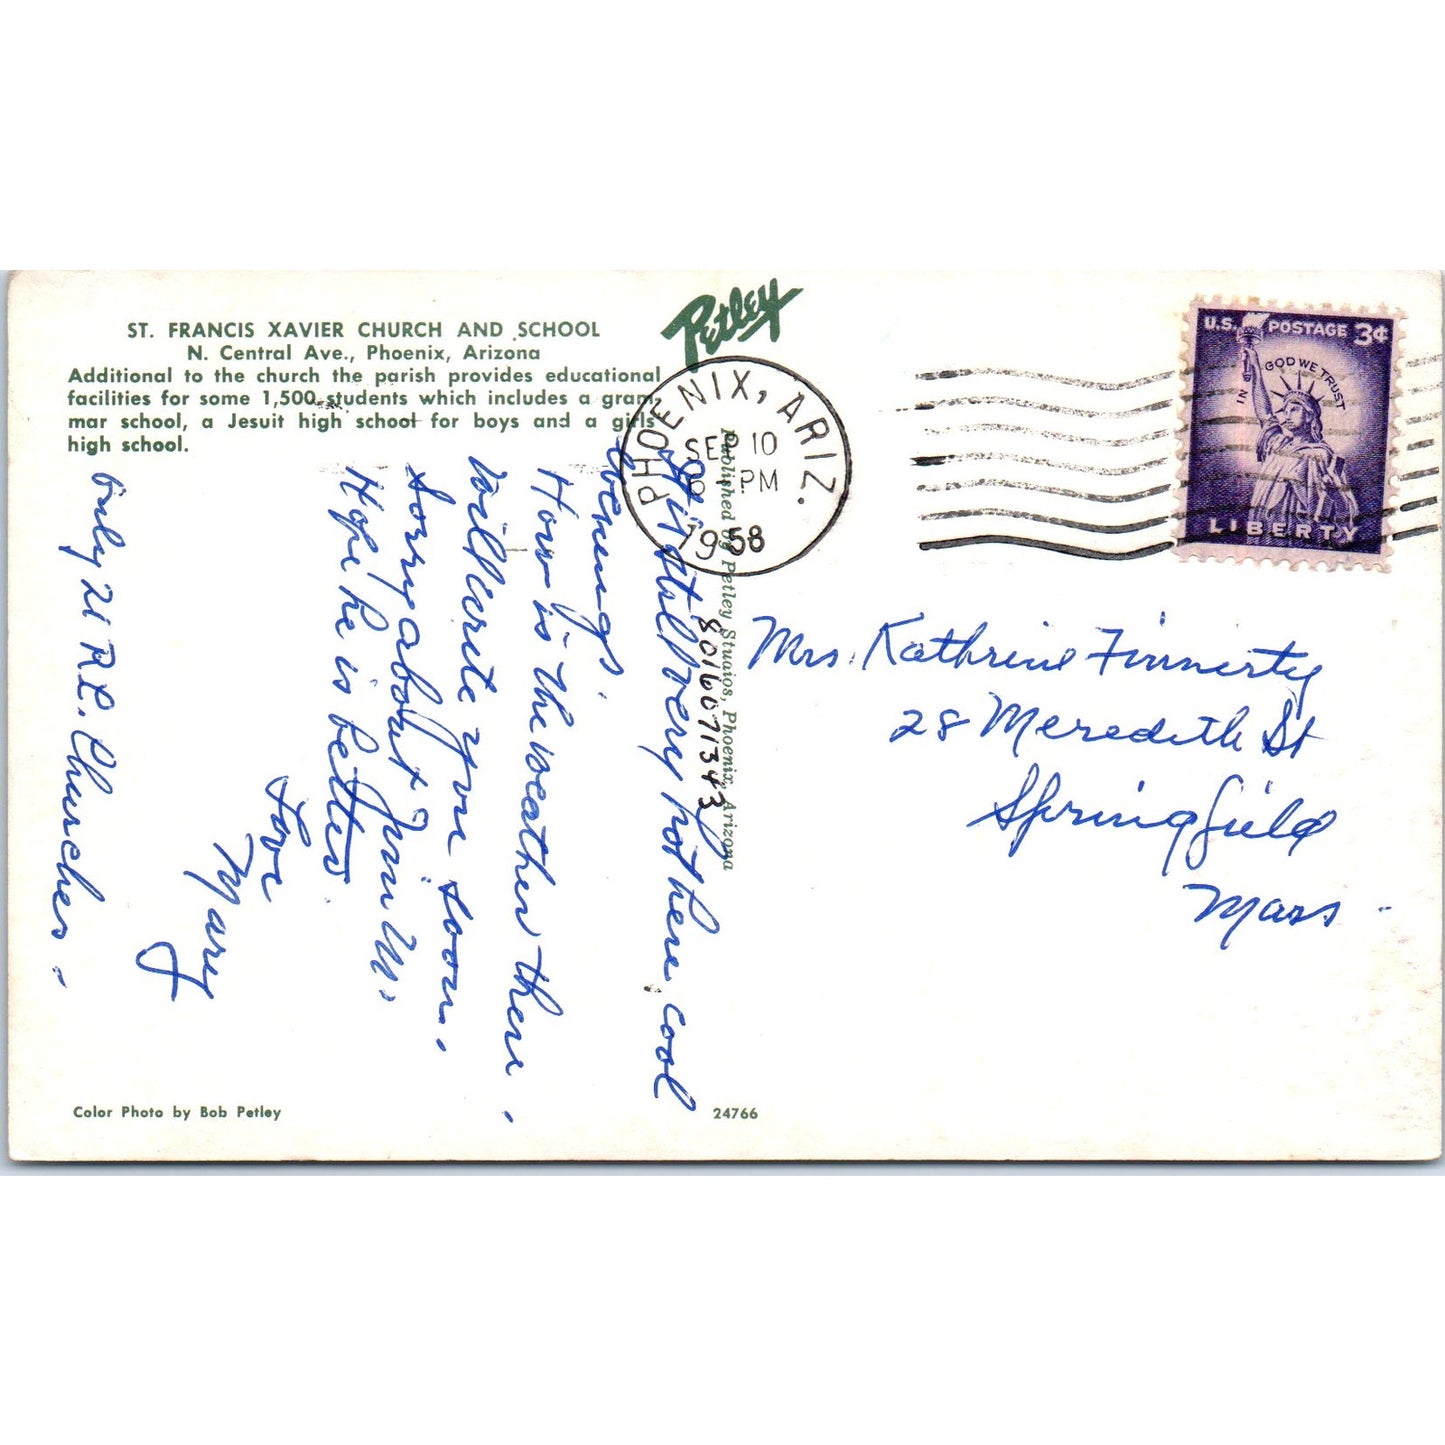 ST. FRANCIS XAVIER CHURCH AND SCHOOL
N. Central Ave., Phoenix, Arizona
Additional to the church the parish provides educational
facilities for some 1,500 students which includes a gram-
mar school, a Jesuit high school for boys and a girls
high school.
Petley
PHOENIX, ARIZ.
SEP 10
6 PM
1958
U.S. POSTAGE 3¢
IN GOD WE TRUST
LIBERTY
It is still very hot here. cool
evenings.
How is the weather there.
Will write you soon.
Sorry about Jim M.
Hope he is better.
Love
Mary
Only 21 R.C. Churches.
Published by Petley Studios, Phoenix, Arizona
8016071343
Mrs. Kathrine Finnerty
28 Meredith St
Springfield
Mass.
Color Photo by Bob Petley
24766